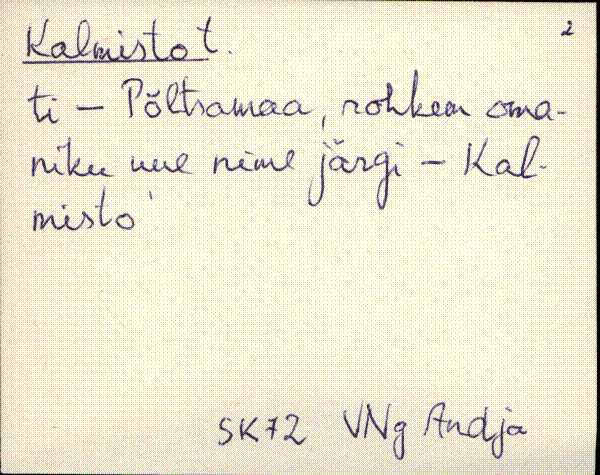 Kalmisto t. 2
ti – Põltsamaa, rohkem oma-
niku uue nime järgi – Kal-
misto'
SK72 VNg Andja